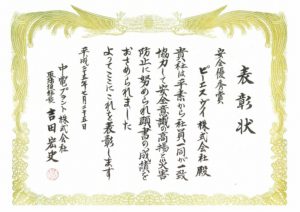 表彰状
安全優秀賞
ピーエスケイ株式会社 殿
貴社は平素から社員一同が一致
協力して安全意識の高揚と災害
防止に努められ顕著の成績を
おさめられました
よってここにこれを表彰します
平成二十五年七月二十五日
中電プラント株式会社
吉田宏史